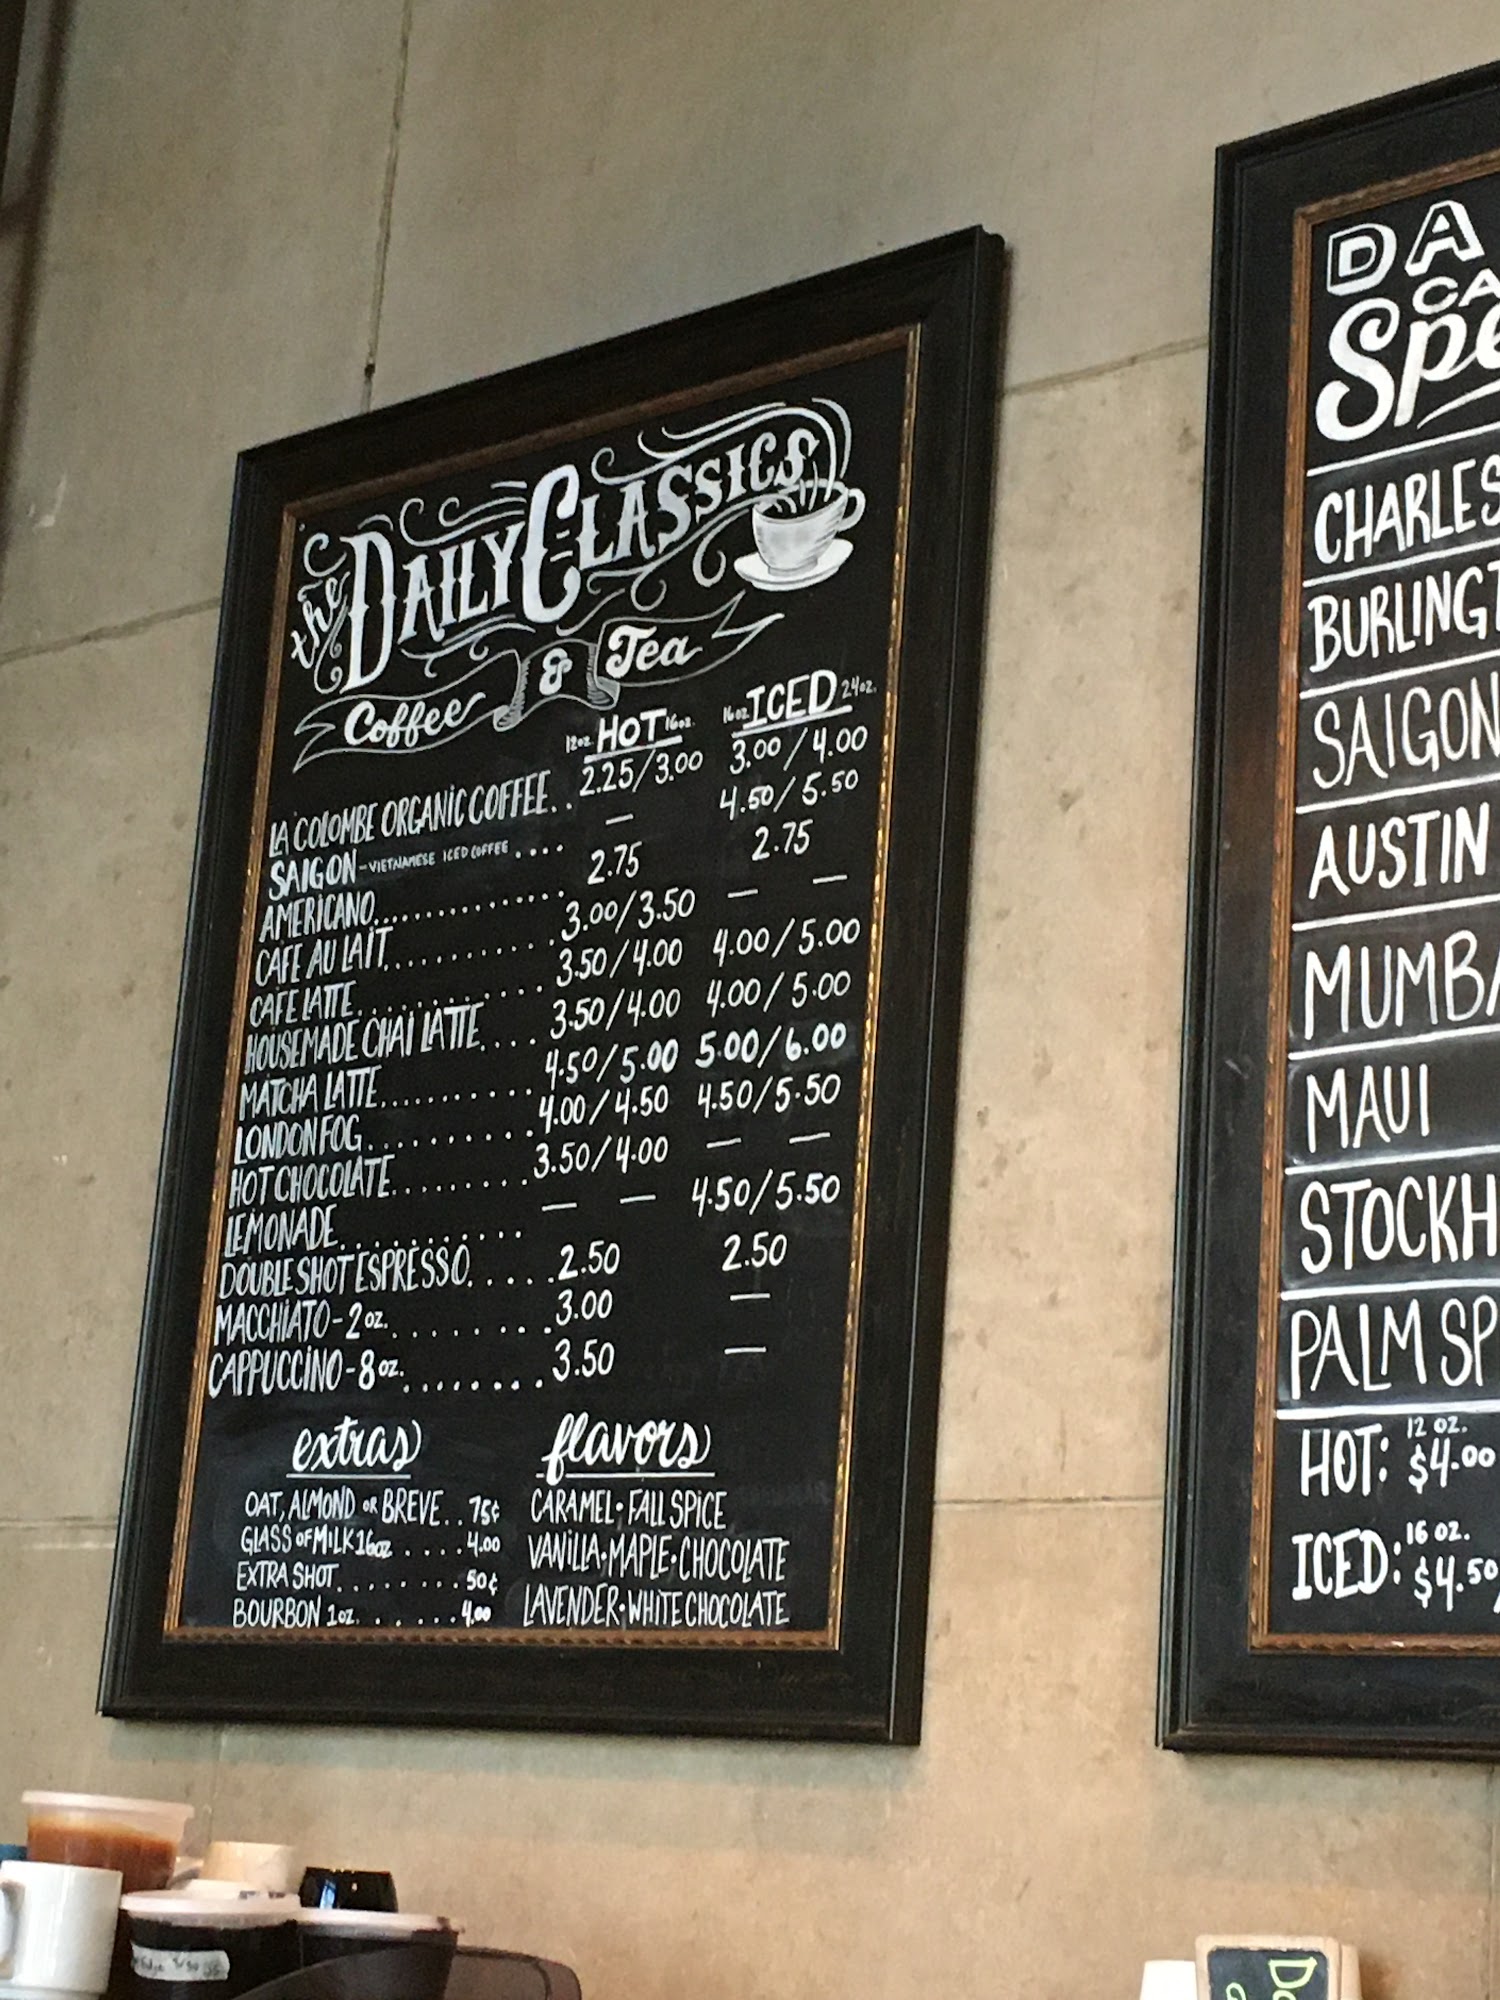 the DAILY CLASSICS
Coffee & Tea
12oz. HOT 16oz. 16oz. ICED 24oz.
LA COLOMBE ORGANIC COFFEE.. 2.25/3.00 3.00/4.00
SAIGON-VIETNAMESE ICED COFFEE.... — 4.50/5.50
AMERICANO.............. 2.75 2.75
CAFE AU LAIT........... 3.00/3.50 — —
CAFE LATTE............. 3.50/4.00 4.00/5.00
HOUSEMADE CHAI LATTE.... 3.50/4.00 4.00/5.00
MATCHA LATTE........... 4.50/5.00 5.00/6.00
LONDON FOG........... 4.00/4.50 4.50/5.50
HOT CHOCOLATE......... 3.50/4.00 — —
LEMONADE........... — — 4.50/5.50
DOUBLE SHOT ESPRESSO...... 2.50 2.50
MACCHIATO-2oz......... 3.00 —
CAPPUCCINO-8oz......... 3.50 —
extras
OAT, ALMOND OR BREVE.. 75¢
GLASS OF MILK 16oz .... 4.00
EXTRA SHOT........ 50¢
BOURBON 1oz...... 4.00
flavors
CARAMEL•FALL SPICE
VANILLA•MAPLE•CHOCOLATE
LAVENDER•WHITE CHOCOLATE
DA
CA
Spe
CHARLES
BURLINGT
SAIGON
AUSTIN
MUMBA
MAUI
STOCKH
PALM SP
HOT: 12 OZ. $4.00
ICED: 16 OZ. $4.50